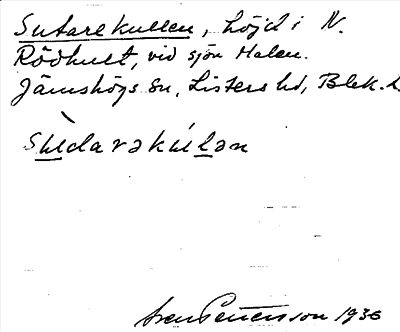 Sutarekullen, höjd i N.
Rödhult, vid sjön Halen.
Jämshögs sn, Listers hd, Blek. l.
Sùdarəkúlən
Sven Petersson 1936